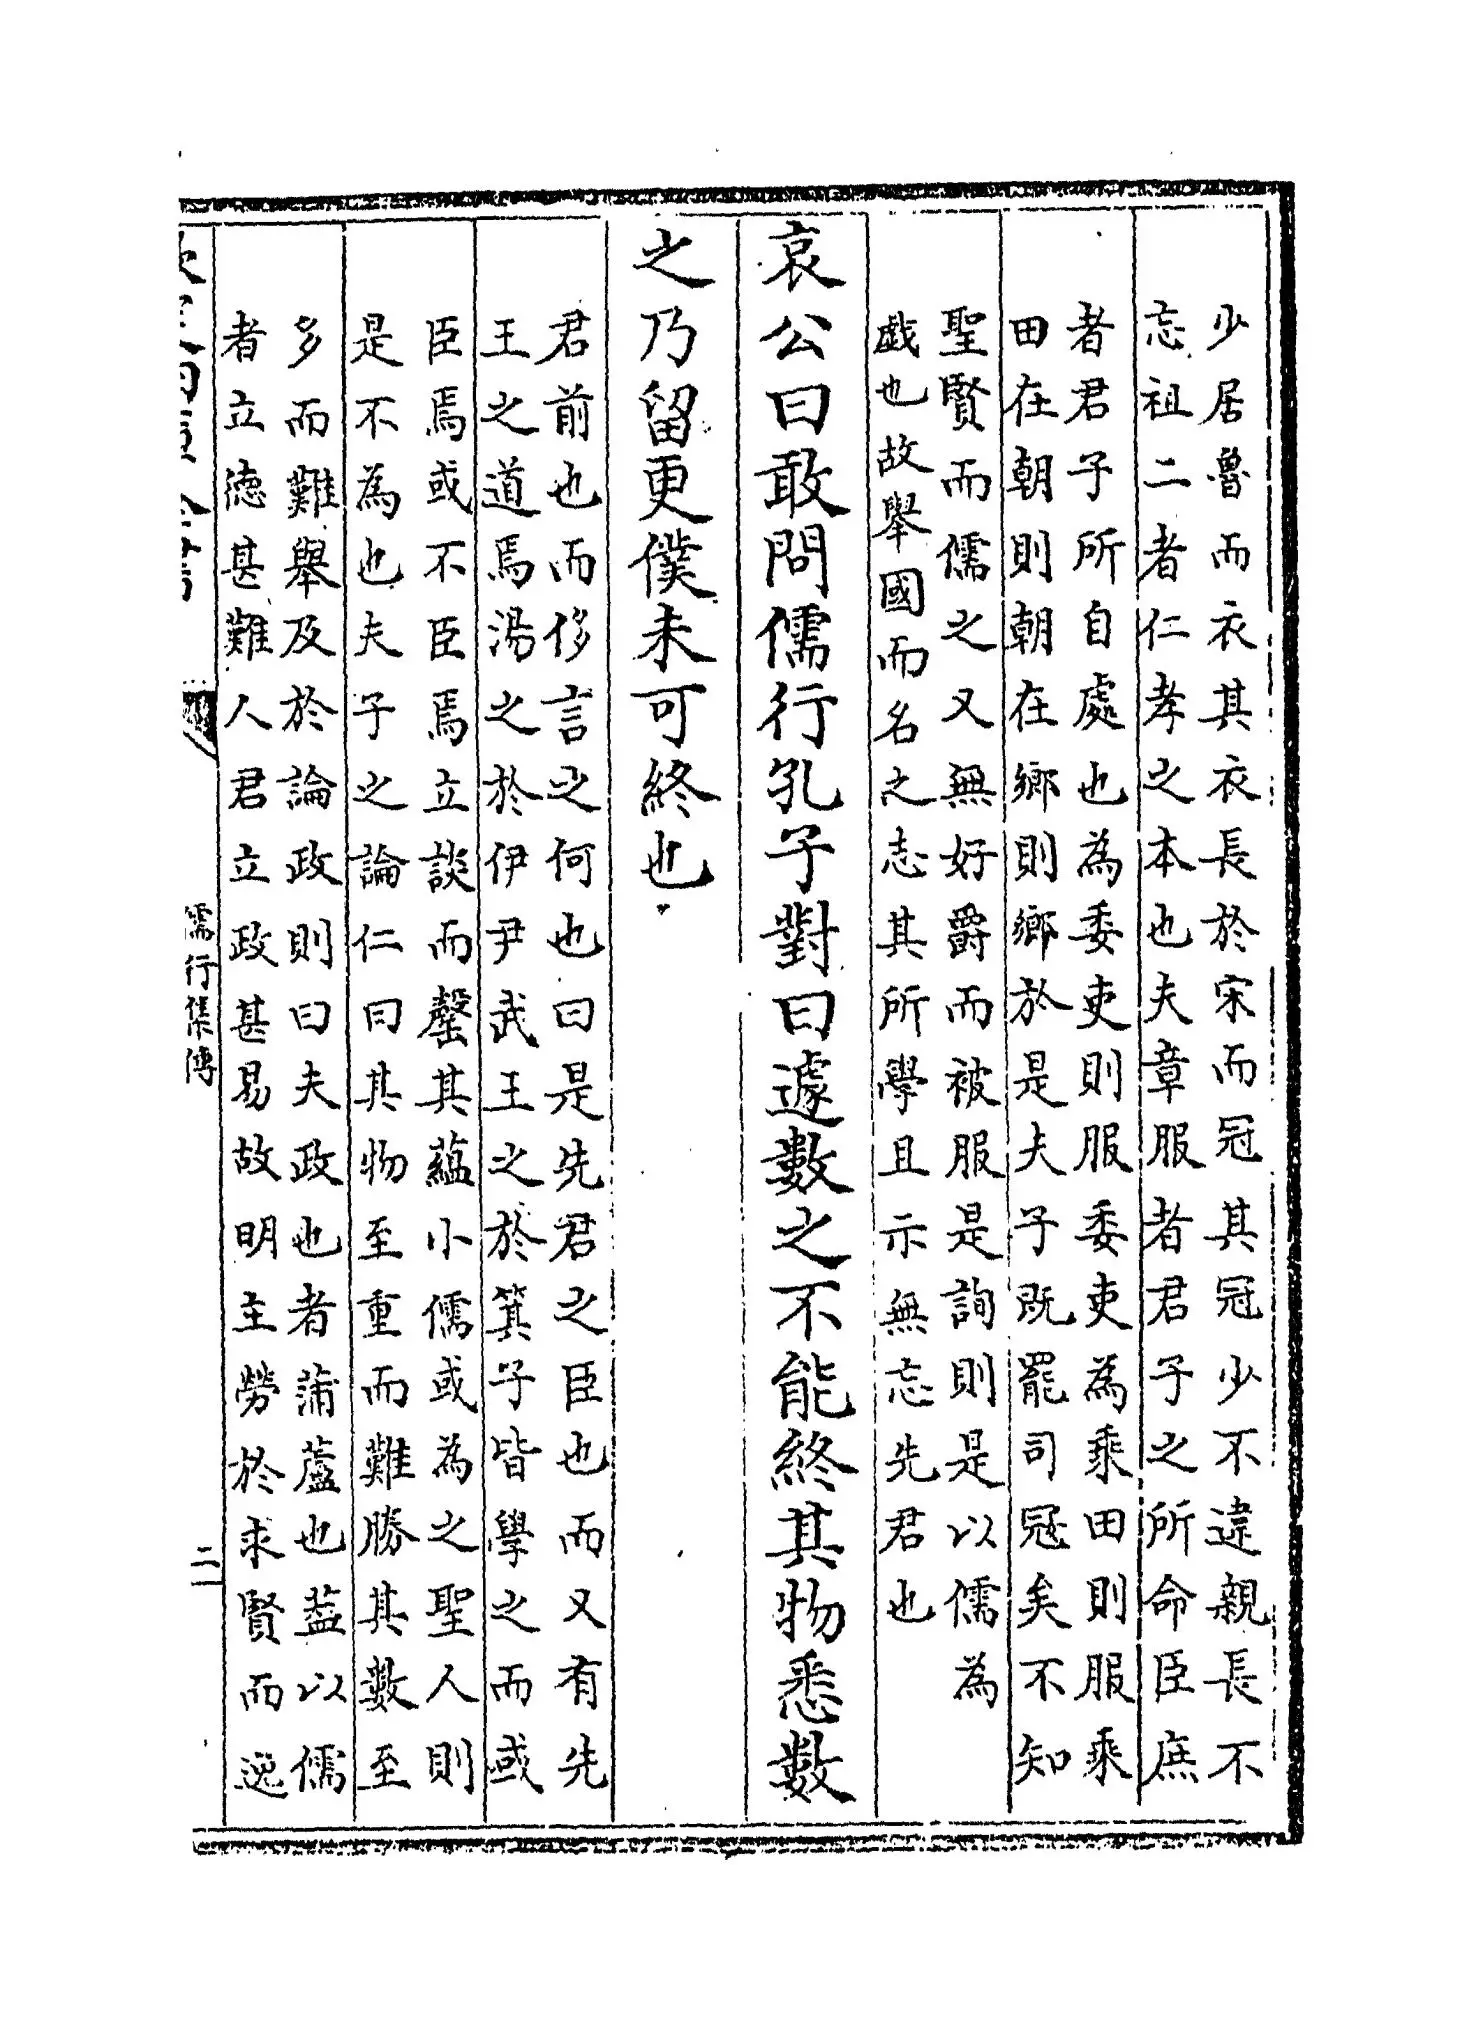 少居魯而衣其衣長於宋而冠其冠少不違親長不
忘祖二者仁孝之本也夫章服者君子之所命臣庶
者君子所自處也為委吏則服委吏為乘田則服乘
田在朝則朝在鄉則鄉於是夫子既罷司冦矣不知
聖賢而儒之又無好爵而被服是詢則是以儒為
戯也故舉國而名之志其所學且示無忘先君也
哀公曰敢問儒行孔子對曰遽數之不能終其物悉數
之乃留更僕未可終也
君前也而侈言之何也曰是先君之臣也而又有先
王之道焉湯之於伊尹武王之於箕子皆學之而或
臣焉或不臣焉立談而罄其蘊小儒或為之聖人則
是不為也夫子之論仁曰其物至重而難勝其數至
多而難舉及於論政則曰夫政也者蒲蘆也葢以儒
者立徳甚難人君立政甚易故明主勞於求賢而逸
儒行集傳
二